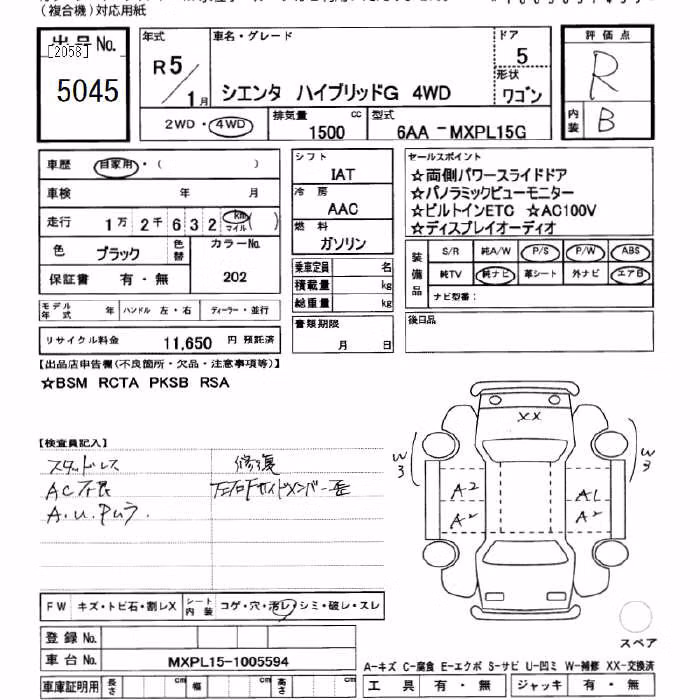 (複合機)対応用紙
出品No.
[2058]
5045
年式
R5/1月
車名・グレード
シエンタ ハイブリッドG 4WD
ドア
5
形状
ワゴン
評価点
R
内装
B
2WD・4WD
排気量
1500 cc
型式
6AA-MXPL15G
車歴 自家用・( )
車検 年 月
走行 1万 2千 6 3 2 km マイル ( )
色 ブラック 色替
カラーNo.
202
保証書 有・無
モデル年式 年 ハンドル 左・右 ディーラー・並行
リサイクル料金 11,650 円 預託済
シフト
IAT
冷房
AAC
燃料
ガソリン
乗車定員 名
積載量 kg
総重量 kg
書類期限
月 日
セールスポイント
☆両側パワースライドドア
☆パノラミックビューモニター
☆ビルトインETC ☆AC100V
☆ディスプレイオーディオ
装備品
S/R 純A/W P/S P/W ABS
純TV 純ナビ 革シート 外ナビ エアB
ナビ型番:
後日品
【出品店申告欄(不良箇所・欠品・注意事項等)】
☆BSM RCTA PKSB RSA
【検査員記入】
スタッドレス
AC不良
A.U.Pムラ.
修復
サイドメンバー歪
XX
W3
W3
A2
A2
A1
A2
スペア
FW キズ・トビ石・割レX シート内装 コゲ・穴・汚レ・シミ・破レ・スレ
登録No.
車台No. MXPL15-1005594
車庫証明用 長さ cm 幅 cm 高さ cm
A-キズ C-腐食 E-エクボ S-サビ U-凹ミ W-補修 XX-交換済
工具 有・無 ジャッキ 有・無